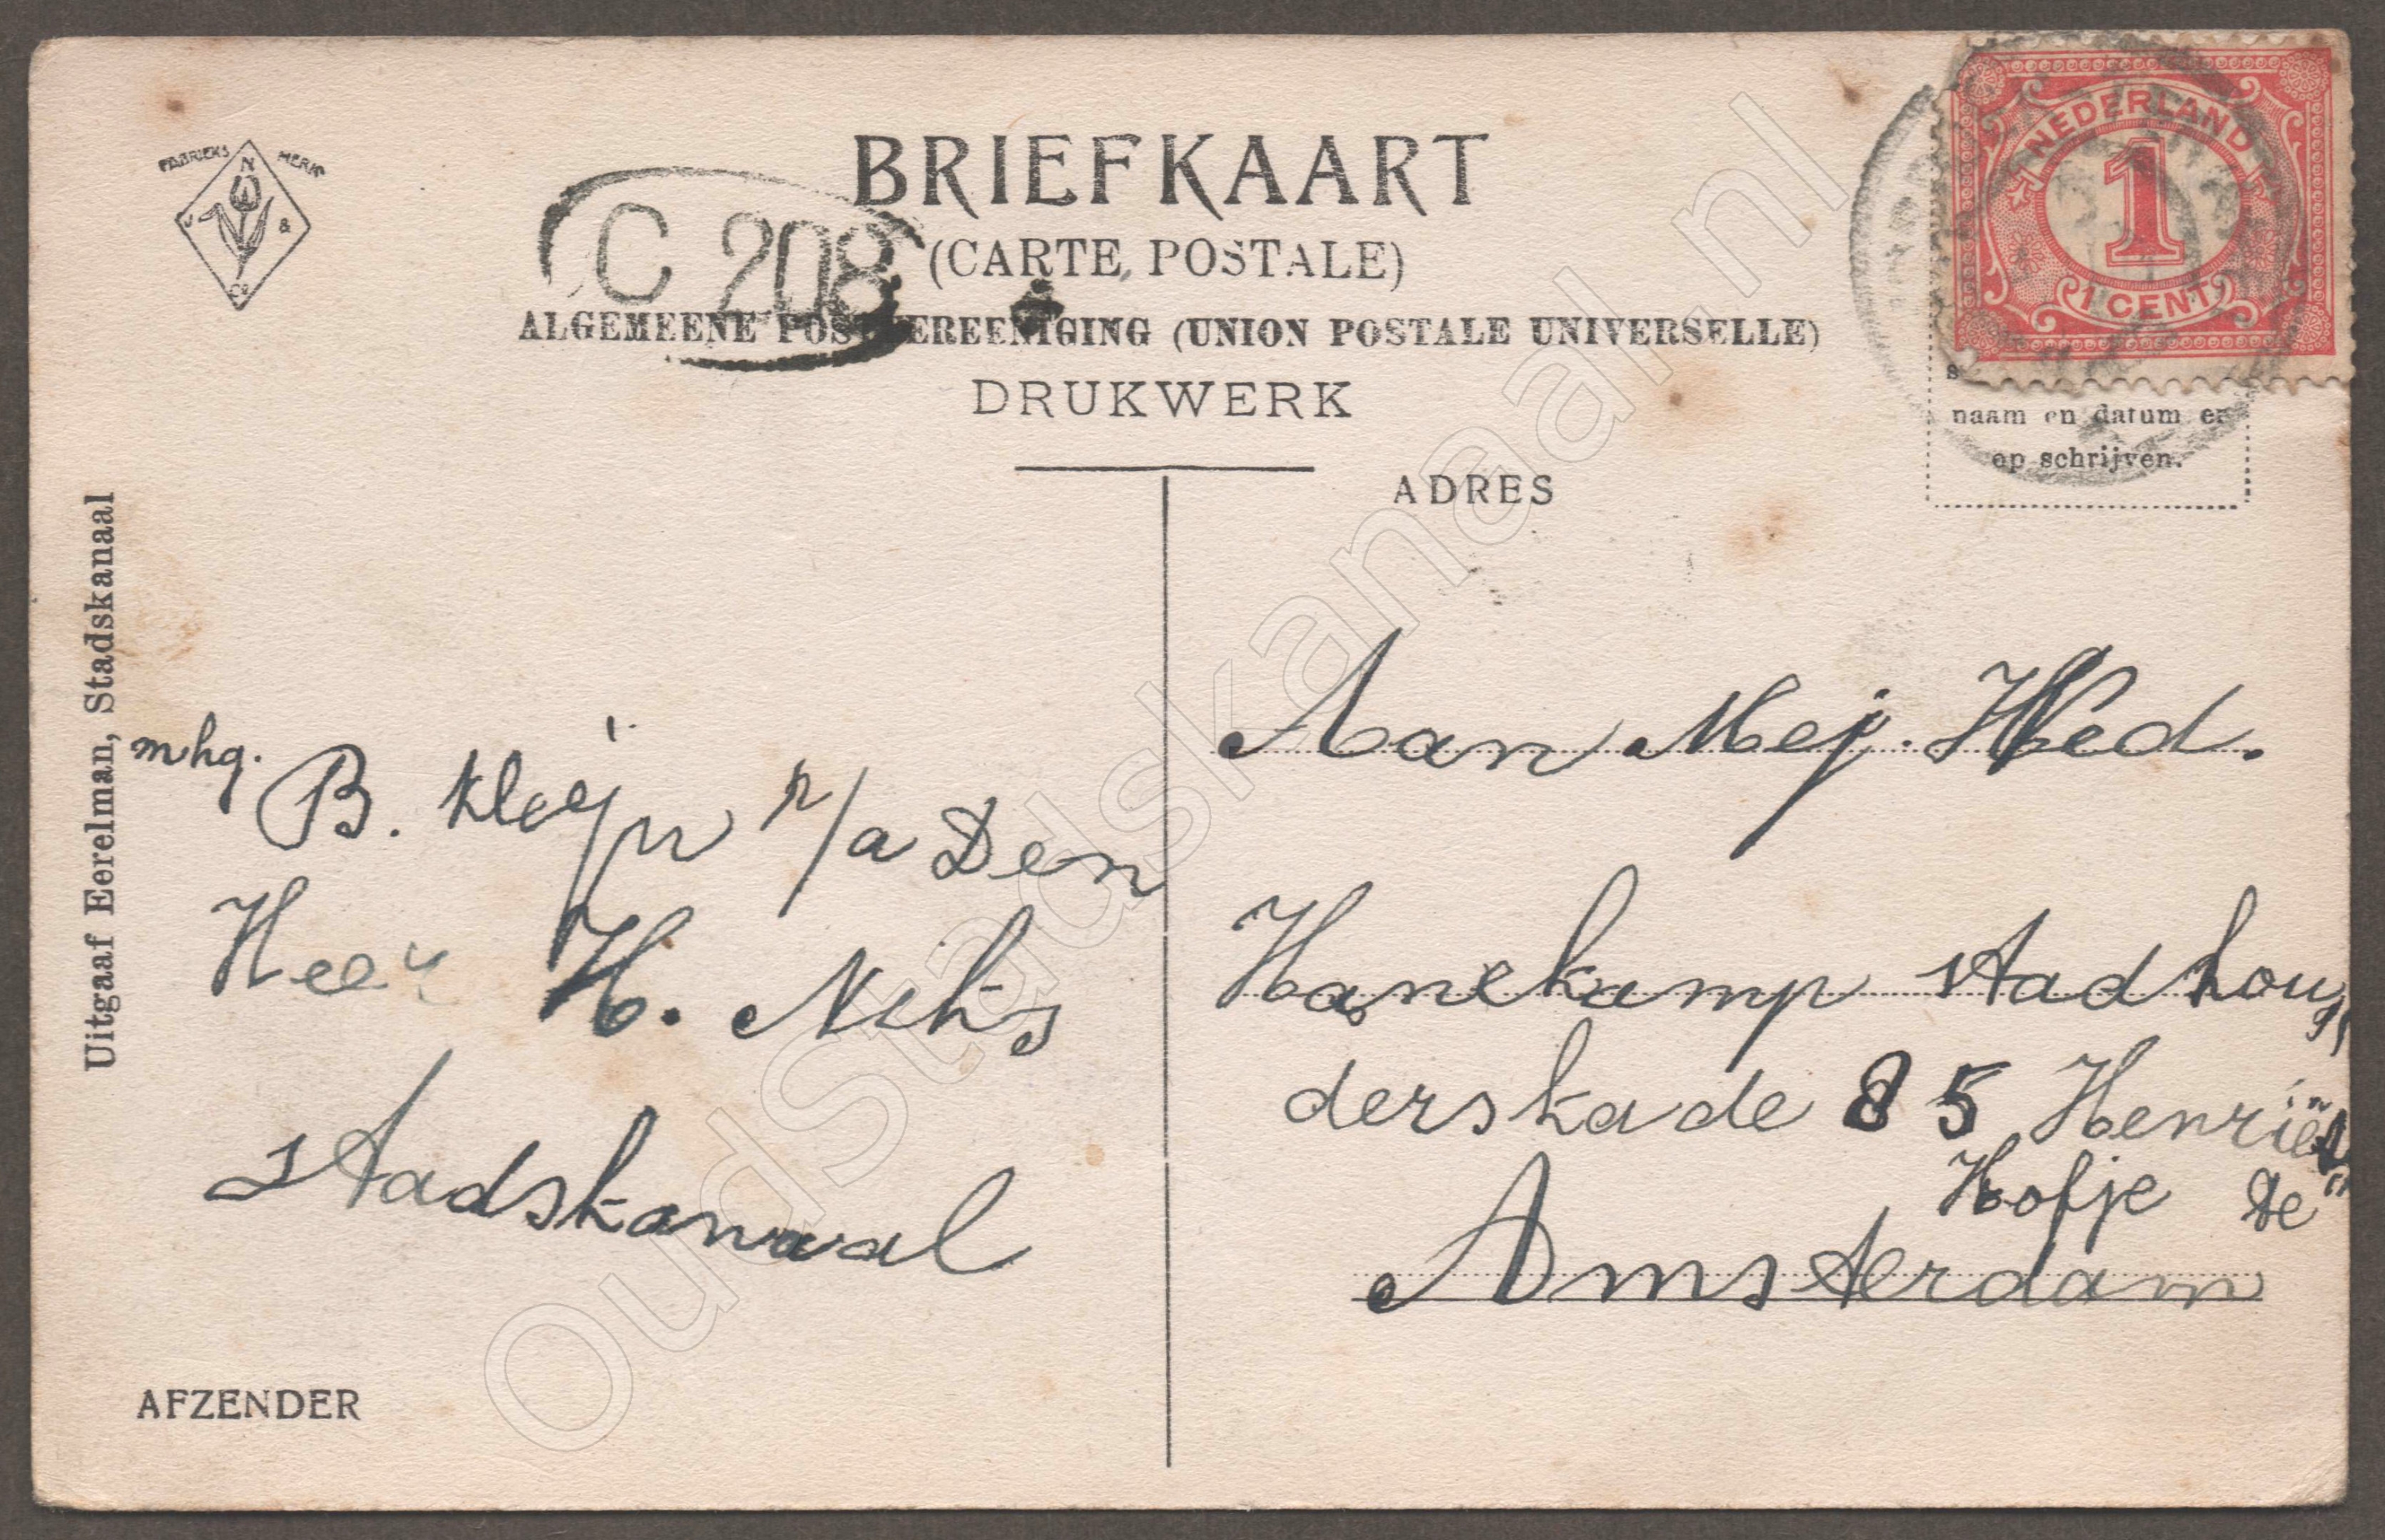 FABRIEKS MERK
N
J &
Co
BRIEFKAART
C 208
(CARTE POSTALE)
ALGEMEENE POSTVEREENIGING (UNION POSTALE UNIVERSELLE)
DRUKWERK
NEDERLAND
1
1 CENT
naam en datum er
op schrijven.
ADRES
Uitgaaf Eerelman, Stadskanaal
mhg.
B. Kleijn p/a Den
Heer H.
Stadskanaal
AFZENDER
Aan Mej. Wed.
Hanekamp Stadhou
derskade 85 Henriët
Hofje te
Amsterdam
OudStadskanaal.nl